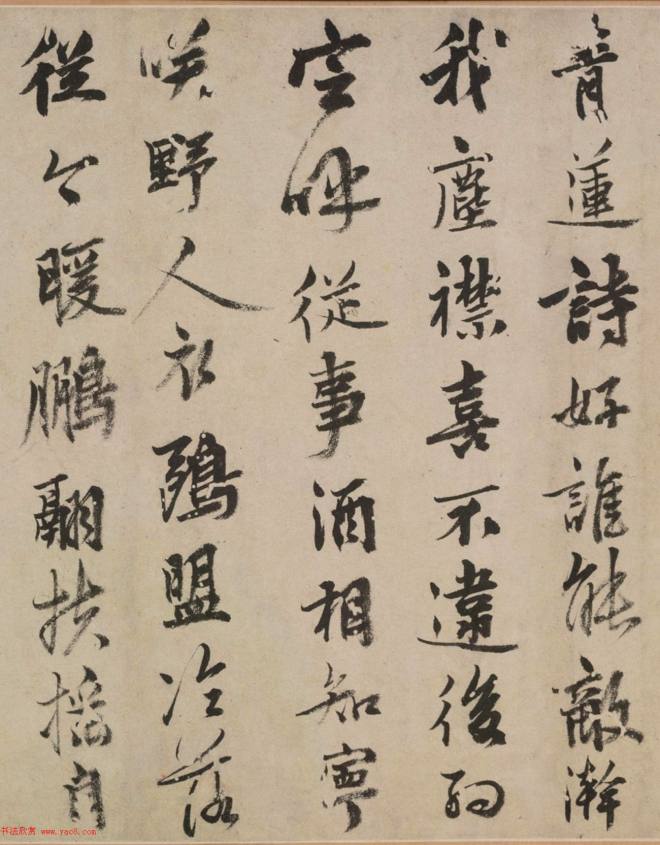 青蓮詩好誰能敵澣
我塵襟喜不違後約
空呼從事酒相知寧
咲野人衣鷗盟冷落
從今暖鵬翮扶搖自
书法欣赏 www.yac8.com